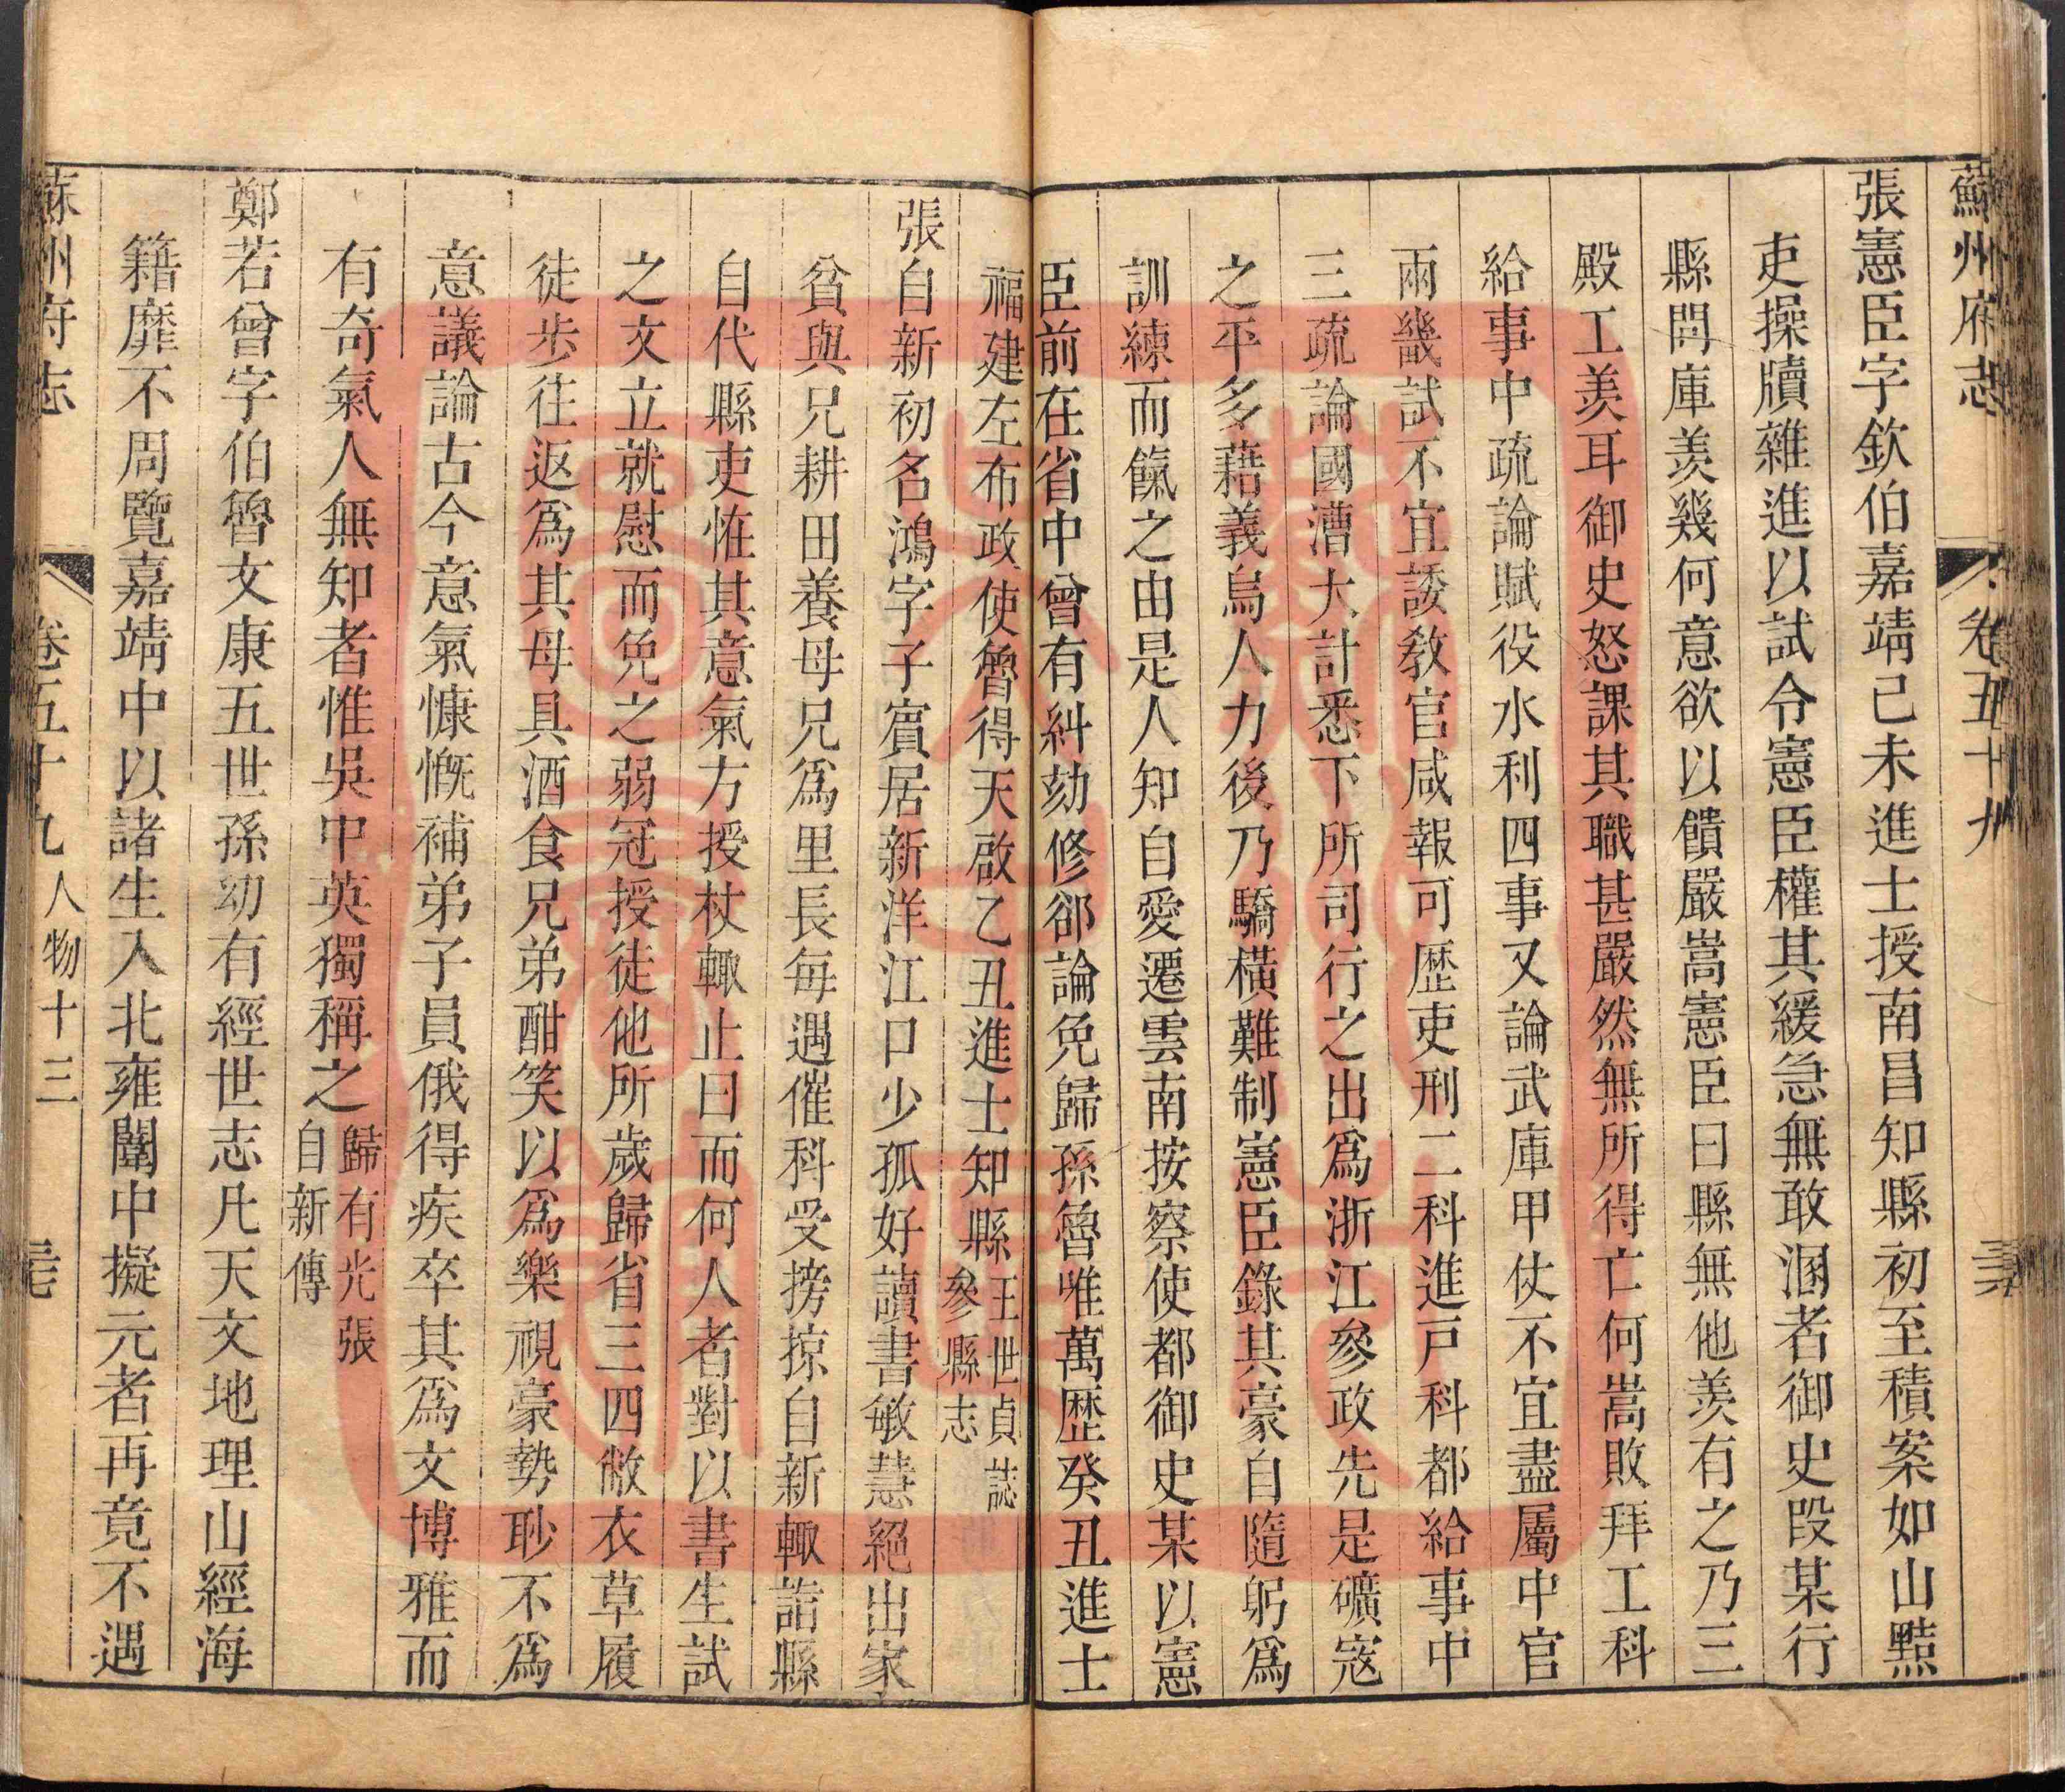 蘇州府志 卷五十九
張憲臣字欽伯嘉靖己未進士授南昌知縣初至積案如山黠
吏操牘雜進以試令憲臣權其緩急無敢溷者御史段某行
縣問庫羨幾何意欲以饋嚴嵩憲臣曰縣無他羨有之乃三
殿工羨耳御史怒課其職甚嚴然無所得亡何嵩敗拜工科
給事中疏論賦役水利四事又論武庫甲仗不宜盡屬中官
兩畿試不宜諉敎官咸報可歷吏刑二科進戸科都給事中
三疏論國漕大計悉下所司行之出爲浙江參政先是礦寇
之平多藉義烏人力後乃驕橫難制憲臣錄其豪自隨躬爲
訓練而餼之由是人知自愛遷雲南按察使都御史某以憲
臣前在省中曾有糾劾修郤論免歸孫魯唯萬歷癸丑進士
福建左布政使魯得天啟乙丑進士知縣王世貞誌參縣志
張自新初名鴻字子賓居新洋江口少孤好讀書敏慧絕出家
貧與兄耕田養母兄爲里長每遇催科受搒掠自新輙詣縣
自代縣吏恠其意氣方授杖輙止曰而何人者對以書生試
之文立就慰而免之弱冠授徒他所歲歸省三四敝衣草履
徒步往返爲其母具酒食兄弟酣笑以爲樂視豪勢眇不爲
意議論古今意氣慷慨補弟子員俄得疾卒其爲文博雅而
有奇氣人無知者惟吳中英獨稱之歸有光張自新傳
鄭若曾字伯魯文康五世孫幼有經世志凡天文地理山經海
籍靡不周覽嘉靖中以諸生入北雍闈中擬元者再竟不遇
蘇州府志 卷五十九 人物十三